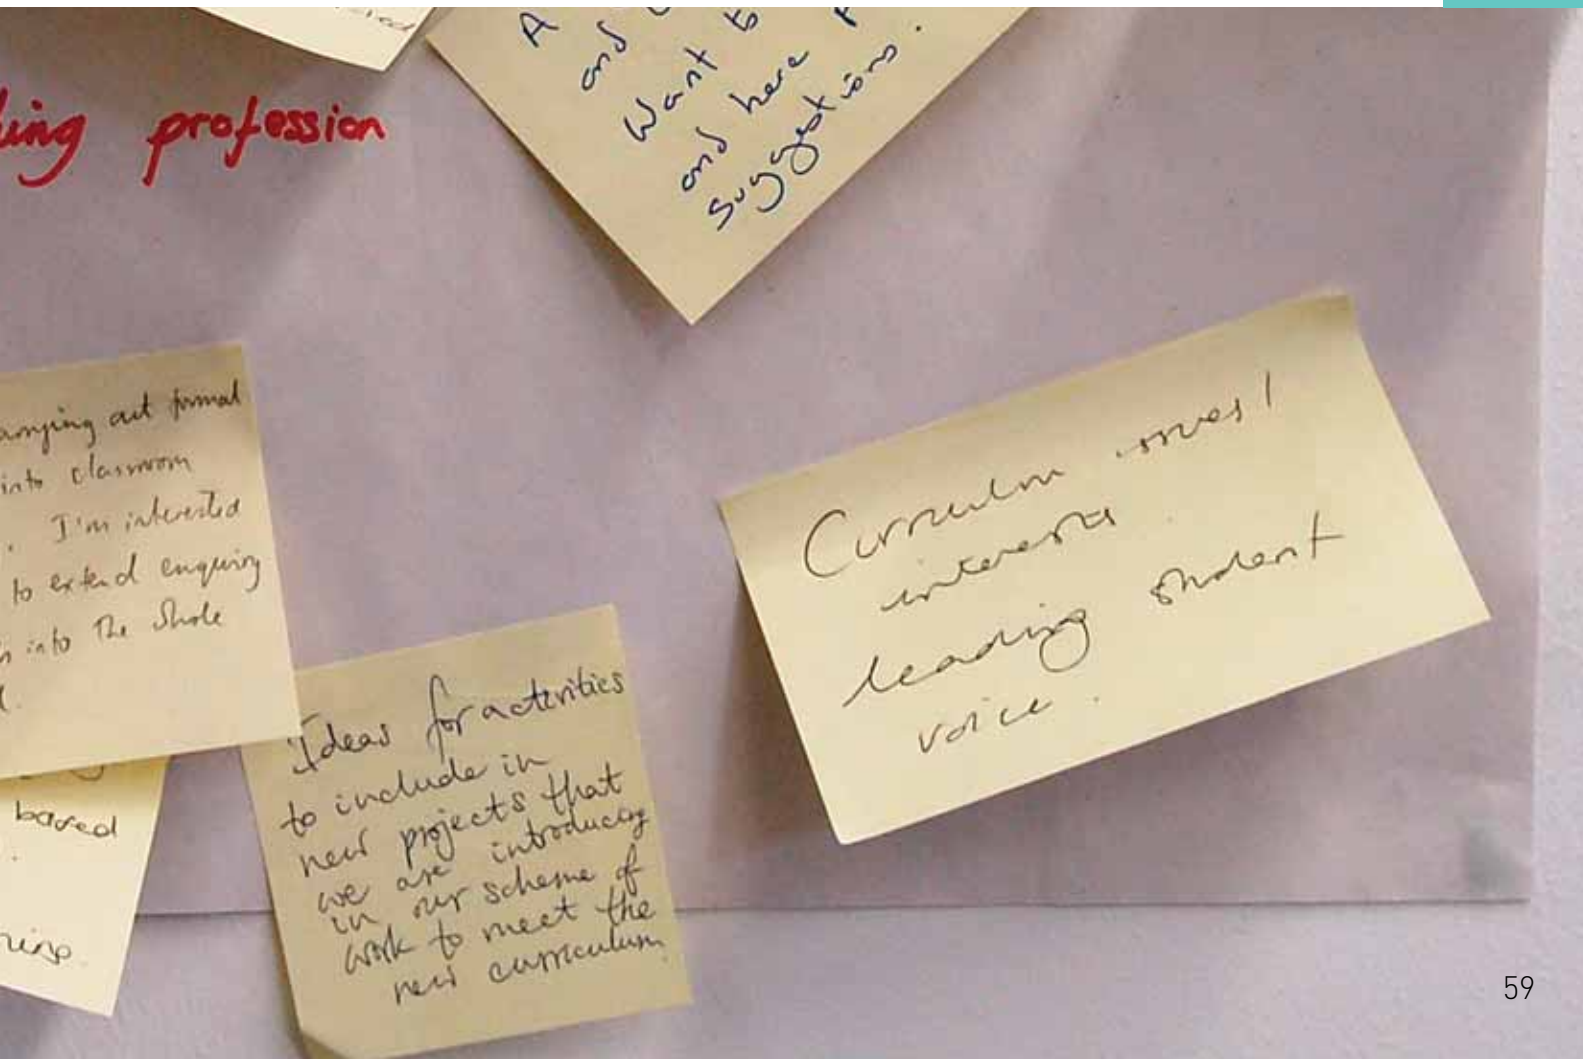 profession
A
and
Want
and here
suggestions.
out formal
into classroom
. I'm interested
to extend enquiry
into the whole
Ideas for activities
to include in
new projects that
we are introducing
in our scheme of
work to meet the
new curriculum
based
Curriculum issues/
interests.
leading student
voice.
59